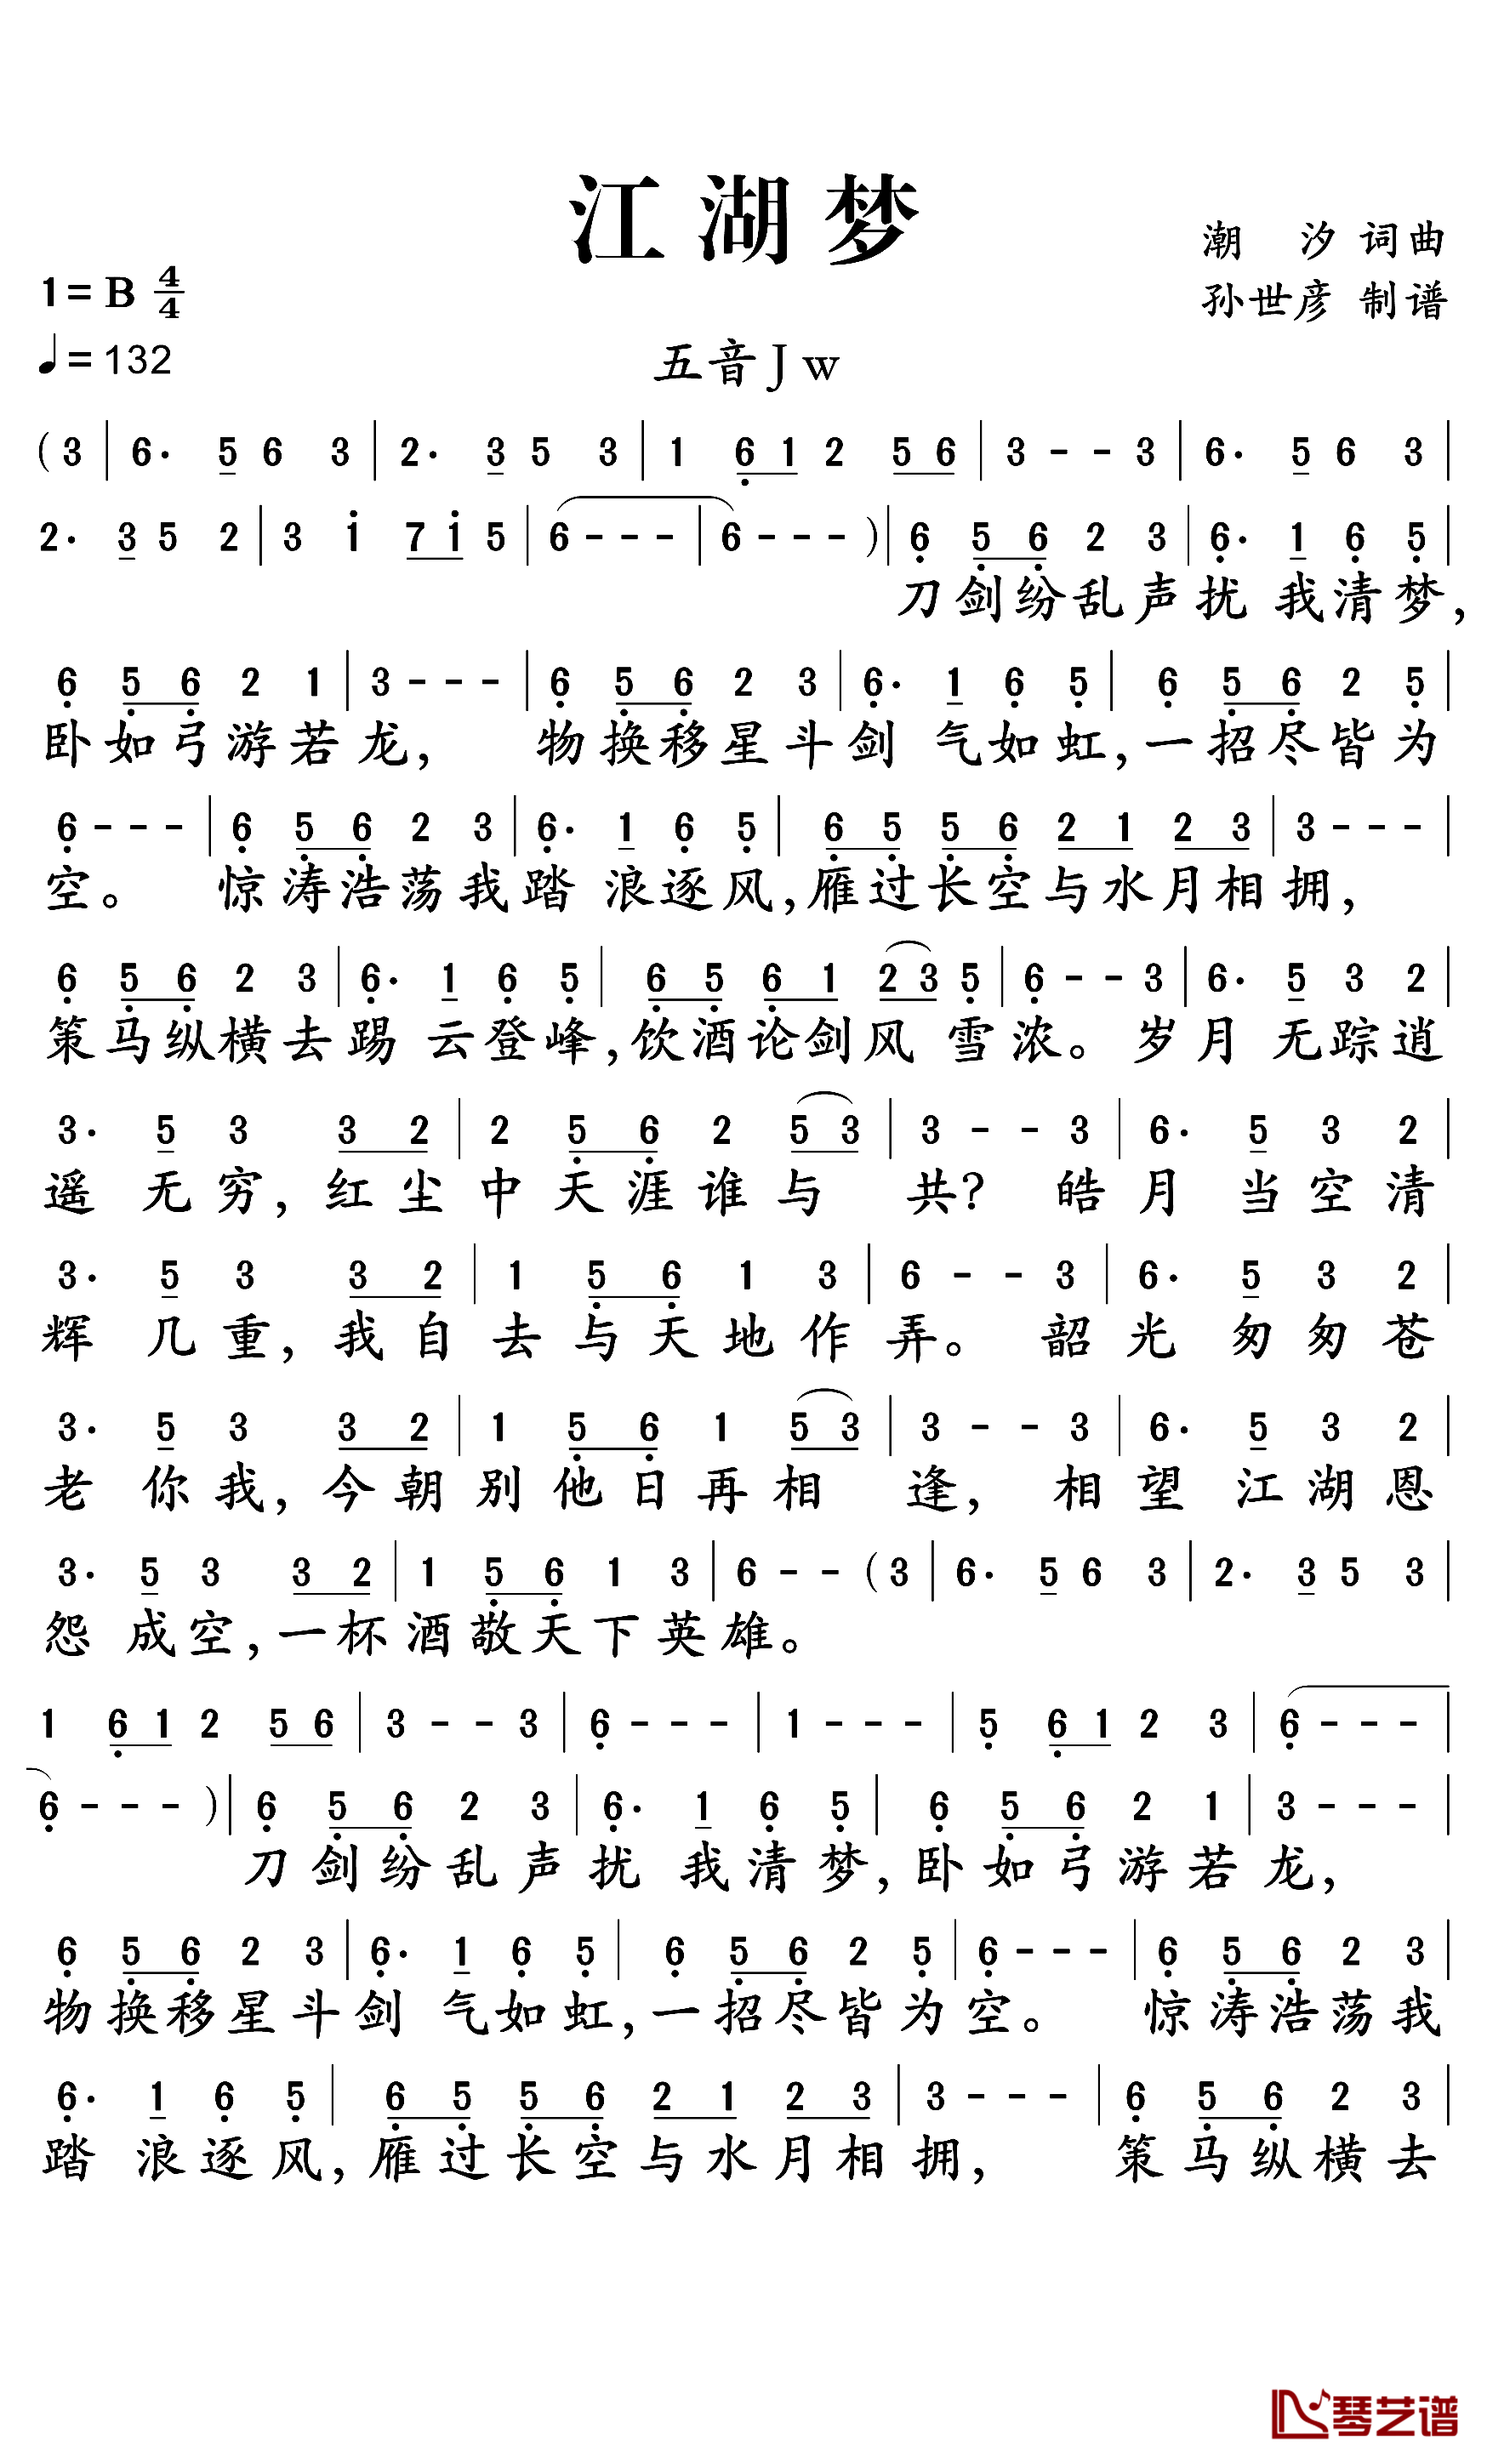 江湖梦
潮 汐 词曲
孙世彦 制谱
1=B 4/4
♩=132
五音Jw
(3 | 6· 5 6 3 | 2· 3 5 3 | 1 6̣ 1 2 5 6 | 3 - - 3 | 6· 5 6 3 |
2· 3 5 2 | 3 1̇ 7 1̇ 5 | 6 - - - | 6 - - - ) | 6̣ 5̣ 6̣ 2 3 | 6̣· 1 6̣ 5̣ |
刀剑纷乱声扰 我清梦,
6̣ 5̣ 6̣ 2 1 | 3 - - - | 6̣ 5̣ 6̣ 2 3 | 6̣· 1 6̣ 5̣ | 6̣ 5̣ 6̣ 2 5̣ |
卧如弓游若龙, 物换移星斗剑 气如虹,一招尽皆为
6̣ - - - | 6̣ 5̣ 6̣ 2 3 | 6̣· 1 6̣ 5̣ | 6̣ 5̣ 5̣ 6̣ 2 1 2 3 | 3 - - - |
空。 惊涛浩荡我踏 浪逐风,雁过长空与水月相拥,
6̣ 5̣ 6̣ 2 3 | 6̣· 1 6̣ 5̣ | 6̣ 5̣ 6̣ 1 2 3 5̣ | 6̣ - - 3 | 6· 5 3 2 |
策马纵横去踢 云登峰,饮酒论剑风 雪浓。岁月 无踪逍
3· 5 3 3 2 | 2 5̣ 6̣ 2 5 3 | 3 - - 3 | 6· 5 3 2 |
遥 无穷,红尘中天涯谁与 共? 皓月 当空清
3· 5 3 3 2 | 1 5̣ 6̣ 1 3 | 6 - - 3 | 6· 5 3 2 |
辉 几重,我自去与天地作弄。 韶光 匆匆苍
3· 5 3 3 2 | 1 5̣ 6̣ 1 5 3 | 3 - - 3 | 6· 5 3 2 |
老 你我,今朝别他日再相 逢, 相望 江湖恩
3· 5 3 3 2 | 1 5̣ 6̣ 1 3 | 6 - - (3 | 6· 5 6 3 | 2· 3 5 3 |
怨 成空,一杯酒敬天下英雄。
1 6̣ 1 2 5 6 | 3 - - 3 | 6̣ - - - | 1 - - - | 5̣ 6̣ 1 2 3 | 6̣ - - - |
6̣ - - - ) | 6̣ 5̣ 6̣ 2 3 | 6̣· 1 6̣ 5̣ | 6̣ 5̣ 6̣ 2 1 | 3 - - - |
刀剑纷乱声扰 我清梦,卧如弓游若龙,
6̣ 5̣ 6̣ 2 3 | 6̣· 1 6̣ 5̣ | 6̣ 5̣ 6̣ 2 5̣ | 6̣ - - - | 6̣ 5̣ 6̣ 2 3 |
物换移星斗剑 气如虹,一招尽皆为空。 惊涛浩荡我
6̣· 1 6̣ 5̣ | 6̣ 5̣ 5̣ 6̣ 2 1 2 3 | 3 - - - | 6̣ 5̣ 6̣ 2 3 |
踏 浪逐风,雁过长空与水月相拥, 策马纵横去
琴艺谱